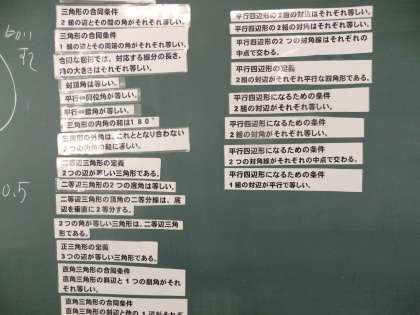 三角形の合同条件
2組の辺とその間の角がそれぞれ等しい。
三角形の合同条件
1組の辺とその両端の角がそれぞれ等しい。
合同な図形では、対応する線分の長さ、
角の大きさはそれぞれ等しい。
対頂角は等しい。
平行⇔同位角が等しい。
平行⇔錯角が等しい。
三角形の内角の和は180°
三角形の外角は、これととなり合わない
2つの内角の和に等しい。
二等辺三角形の定義
2つの辺が等しい三角形である。
二等辺三角形の2つの底角は等しい。
二等辺三角形の頂角の二等分線は、底
辺を垂直に2等分する。
2つの角が等しい三角形は、二等辺三角
形である。
正三角形の定義
3つの辺が等しい三角形である。
直角三角形の合同条件
直角三角形の斜辺と1つの鋭角がそれ
ぞれ等しい。
直角三角形の合同条件
直角三角形の斜辺と他の1辺がそれぞ
平行四辺形の2組の対辺はそれぞれ等しい。
平行四辺形の2組の対角はそれぞれ等しい。
平行四辺形の2つの対角線はそれぞれの
中点で交わる。
平行四辺形の定義
2組の対辺がそれぞれ平行な四角形である。
平行四辺形になるための条件
2組の対辺がそれぞれ等しい。
平行四辺形になるための条件
2組の対角がそれぞれ等しい。
平行四辺形になるための条件
2つの対角線がそれぞれの中点で交わる。
平行四辺形になるための条件
1組の対辺が平行で等しい。
0.5